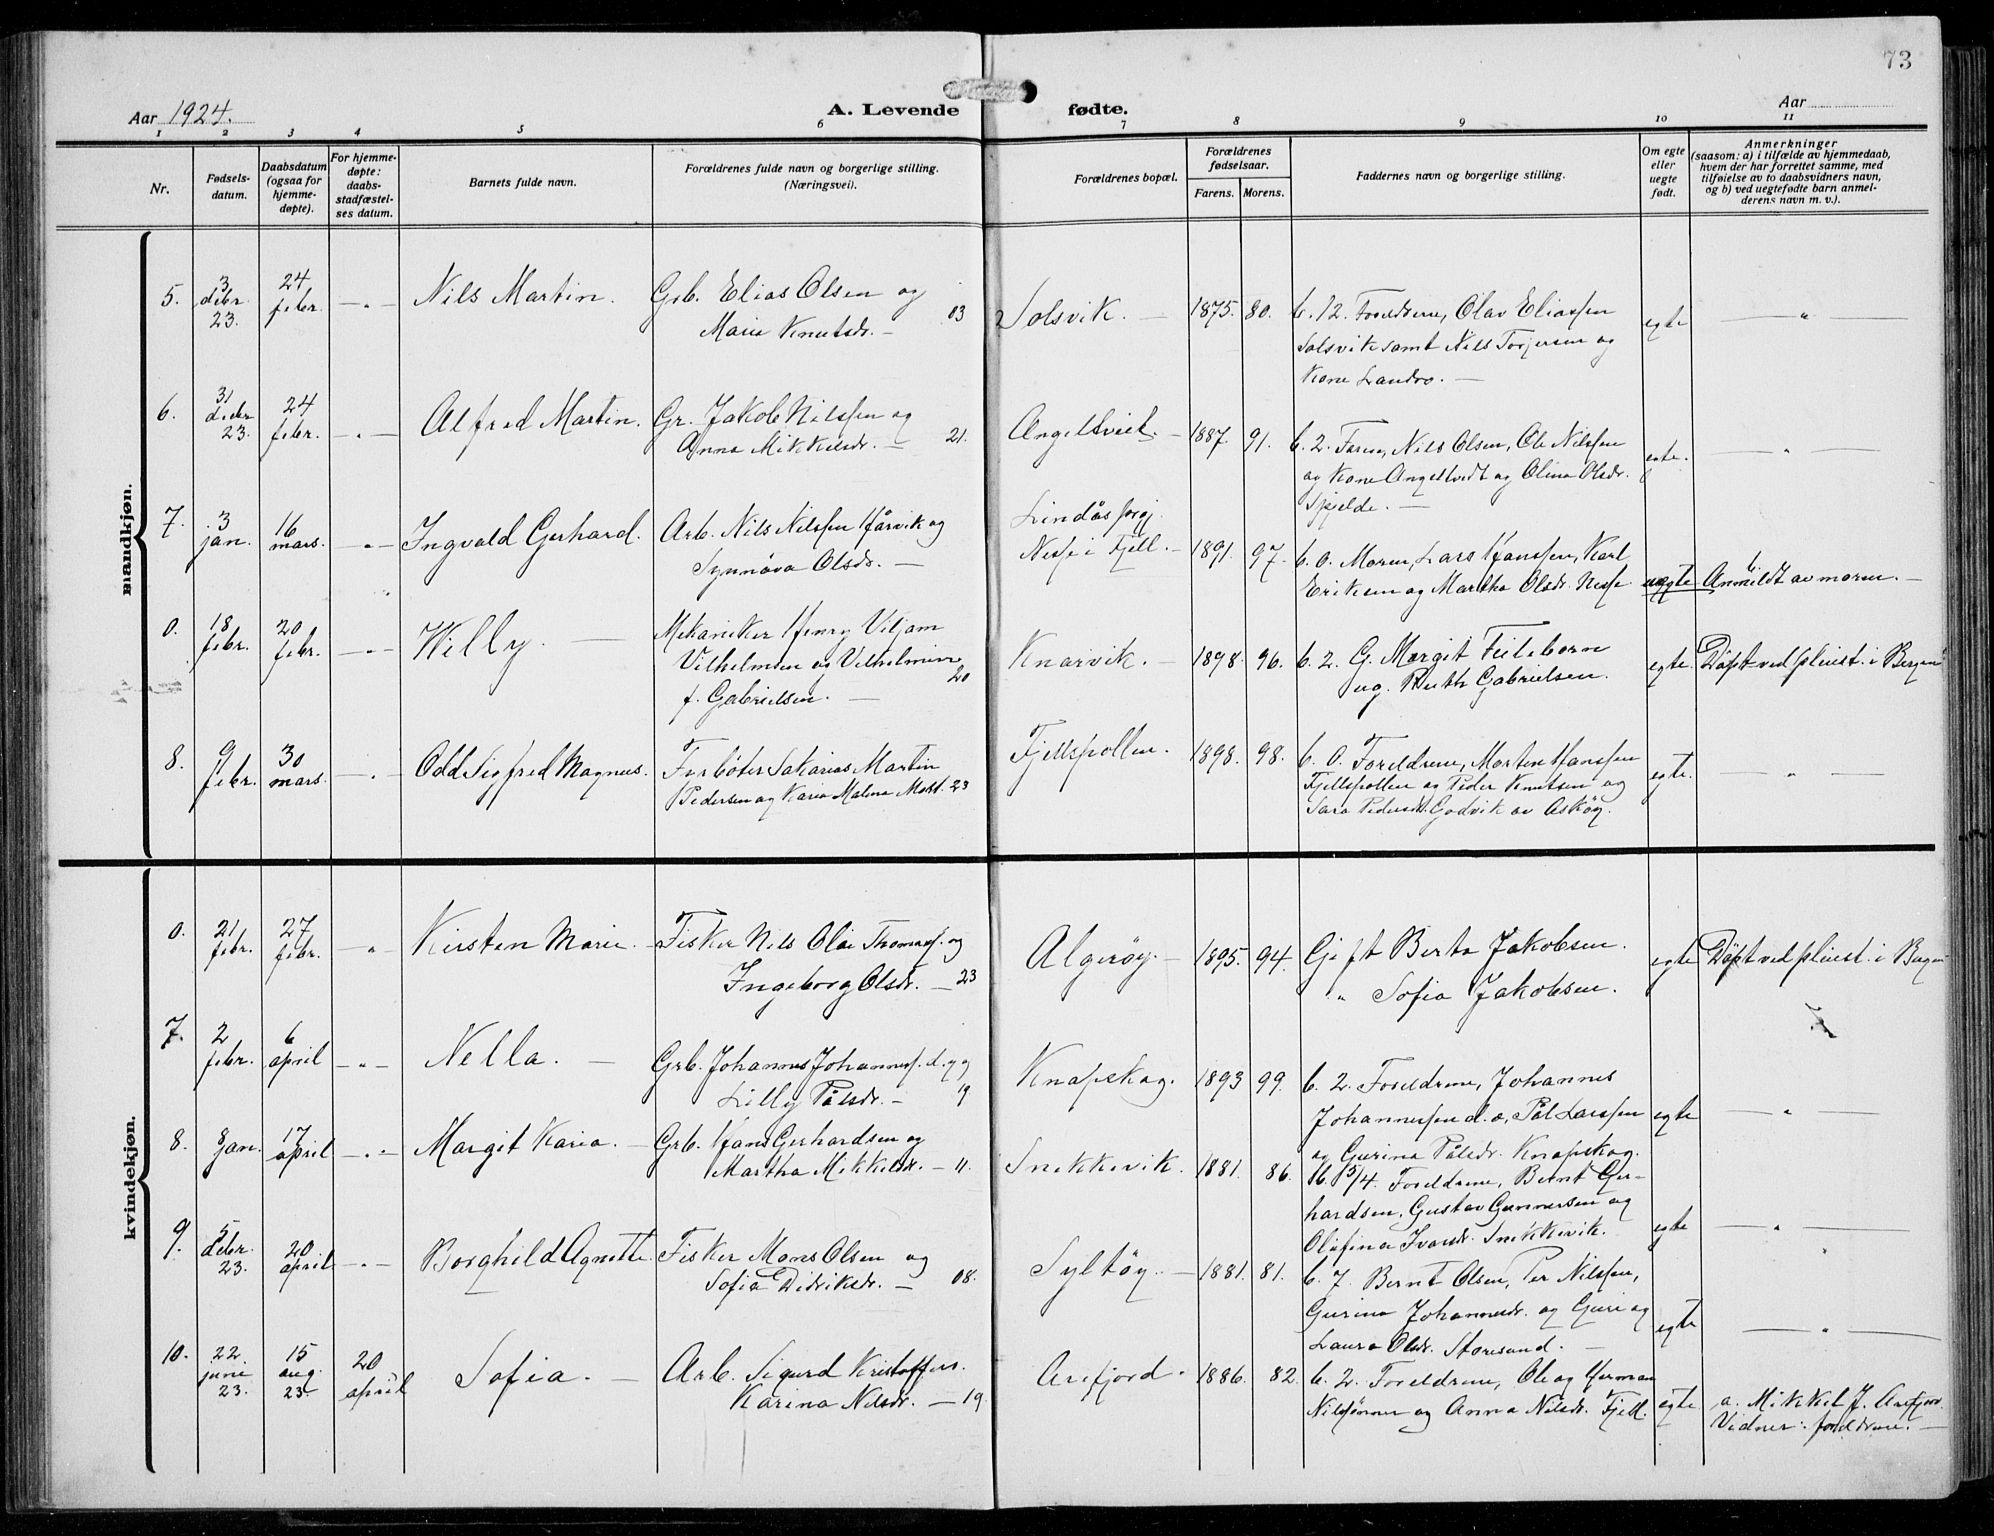 73
Aar 1924.
A. Levende fødte.
Aar
1 2 3 4 5 6 7 8 9 10 11
Nr.
Fødsels-
datum.
Daabsdatum
(ogsaa for
hjemme-
døpte).
For hjemme-
døpte:
daabs-
stadfæstel-
ses datum.
Barnets fulde navn.
Forældrenes fulde navn og borgerlige stilling.
(Næringsvei).
Forældrenes bopæl.
Forældrenes
fødselsaar.
Farens. Morens.
Faddernes navn og borgerlige stilling.
Om egte
eller
uegte
født.
Anmerkninger
(saasom: a) i tilfælde av hjemmedaab,
hvem der har forrettet samme, med
tilføielse av to daabsvidners navn,
og b) ved uegtefødte barn anmel-
derens navn m. v.).
mandkjøn.
5.
3
debr.
23.
24
febr.
—„—
Nils Martin.
Grb. Elias Olsen og
Maria Knutsdr. — 03
Solsvik. —
1875. 80.
b. 12. Foreldrene, Olav Eliassen
Solsvik samt Nils Torjersen og
Kone Landro. —
egte
— „ —
6.
31
debr
23.
24
febr.
—„—
Alfred Martin.
Gr. Jakob Nilssen og
Anna Mikkelsdr. — 21.
Angeltveit. —
1887. 91.
b. 2. Faren, Nils Olsen, Ole Nilssen
og Kone Angeltvedt og Olina Olsdr.
Spjelde. —
egte.
— „ —
7.
3
jan.
16
mars.
—„—
Ingvald Gerhard.
Arb. Nils Nilssen Hårvik og
Synnøva Olsdr. —
Lindås prgj.
Nese i Fjell. —
1891. 97.
b. 0. Moren, Lars Hanssen, Karl
Eriksen og Martha Olsdr. Nese
uegte
Anmeldt av moren. —
0.
18
febr.
20
febr.
—„—
Willy. —
Mekaniker Henry Viljam
Vilhelmsen og Vilhelmine
f. Gabrielsen. — 20
Knarvik. —
1898. 96.
b. 2. G. Margit Fileborn
ug. Ruth Gabrielsen.
egte
Døpt ved pleiest. i Bergen
8.
9
febr.
30
mars.
—„—
Odd Sigfred Magnus.
Fyrbøter Sakarias Martin
Pedersen og Karia Malena Matt. 23
Fjellspollen.
1898. 98.
b. 0. Foreldrene, Morten Hanssen
Fjellspollen og Peder Knutsen og
Sara Pedersdr. Godvik av Askøy.
egte.
— „ —
kvindekjøn.
0.
21
febr.
27
febr.
—„
Kirsten Marie. —
Fisker Nils Olai Thomass. og
Ingeborg Olsdr. — 23
Algerøy. —
1895. 94.
Gift Berta Jakobsen.
„ Sofia Jakobsen.
egte
Døpt ved pleiest. i Bergen
7.
2
febr.
6
april
—„—
Nella. —
Grb. Johannes Johanness. d.y. og
Lilly Pålsdr. — 19
Knapskog.
1893 99.
b. 2. Foreldrene, Johannes
Johannessen d. e., Pål Larssen
og Gurina Pålsdr. Knapskog.
egte
— „ —
8.
8
jan.
17
april
—„—
Margit Karia. —
Grb. Hans Gerhardsen og
Martha Mikkelsdr. — 11.
Snekkevik.
1881. 86.
b. 15/4. Foreldrene, Bernt Ger-
hardsen, Gustav Gunnersen og
Olefina Ivarsdr. Snekkevik.
egte
— „ —
9.
5
debr.
23.
20
april
—„—
Borghild Agnette.
Fisker Mons Olsen og
Sofia Didriksdr. — 08.
Syltøy. —
1881. 81.
b. 7. Bernt Olsen, Per Nilssen,
Gurina Johannesdr. og Guri og
Laura Olsdr. Storesund. —
egte
— „ —
10.
22
juni
23.
15
aug.
23.
20
april
Sofia. —
Arb. Sigurd Kristoffers.
Karina Nilsdr. — 19.
Arefjord.
1886. 82.
b. 2. Foreldrene, Ole og Herman
Nilssønner og Anna Nilsdr. Fjell.
egte
a. Mikkel J. Arefjord.
Vidner: foreldrene. —